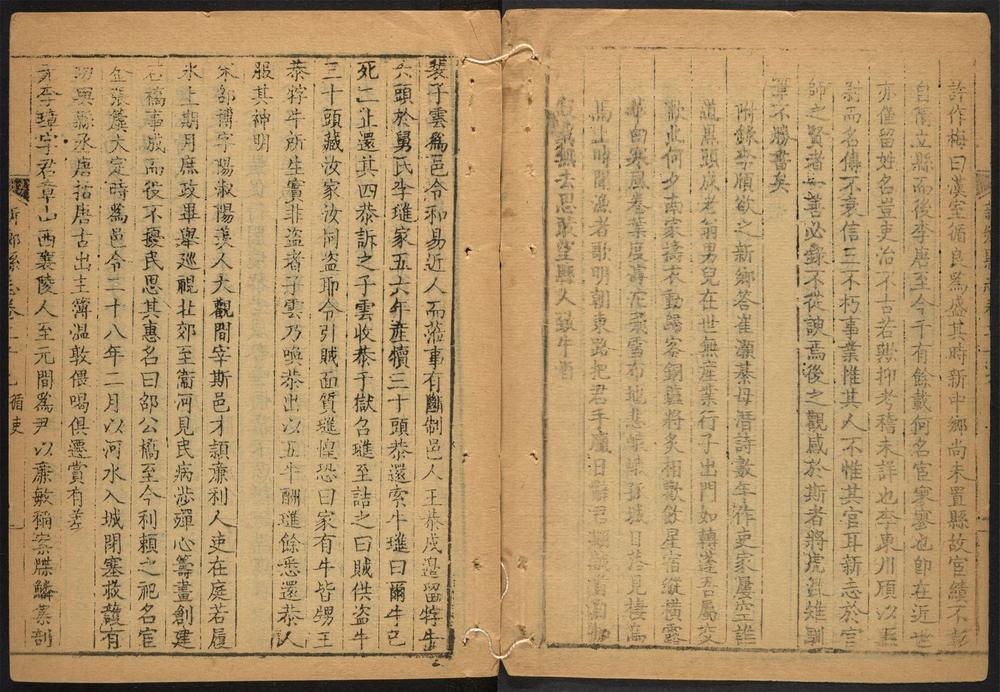 許作梅曰漢室循良為盛其時新中鄉尚未置縣故官績不彰
自隋立縣而後李唐至今千有餘載何名宦寥寥也卽在近世
亦僅留姓名豈吏治不古若歟抑考稽未詳也李東川頎以
尉而名傳不衰信三不朽事業惟其人不惟其官耳新志於官
師之賢者一善必錄不從諛焉後之觀感於斯者將虎盜雉馴
筆不勝書矣
附錄李頎欲之新鄉答崔灝綦毋潛詩數年作吏家屢空誰
道黑頭成老翁男兒在世無産業行子出門如轉蓬吾屬交
歡此何夕南家擣衣動歸客銅鑪將炙相歡飲星宿縱橫露
華白寒風卷葉度滹沱飛雪布地悲峩峩孤城日落見棲鳥
馬上時聞漁者歌明朝東路把君手臘日辭君期歲首
寂寞無去思敢望縣人致牛酒
裴子雲為邑令和易近人而蒞事有斷制邑人王恭戍邊留牸牛
六頭於舅氏李璡家五六年産犢三十頭恭還索牛璡曰爾牛已
死二止還其四恭訴之子雲收恭于獄召璡至詰之曰賊供盜牛
三十頭藏汝家汝同盜耶令引賊面質璡惶恐曰家有牛皆甥王
恭牸牛所生實非盜者子雲乃喚恭出以五牛酬璡餘悉還恭人
服其神明
宋邵博字陽淑陽羨人大觀間宰斯邑才頴廉利人吏在庭若履
氷上期月庶政畢舉巡視北郊至衞河見民病涉殫心籌畫創建
石橋事成而役不擾民思其惠名曰邵公橋至今利賴之祀名宦
金張簴大定時為邑令二十八年二月以河水入城閉塞救護有
功與縣丞唐括唐古出主簿温敦偎喝俱遷賞有差
元李璋字君章山西襄陵人至元間為尹以廉敏稱案牒鱗集剖
新鄉縣志卷二十九 循吏